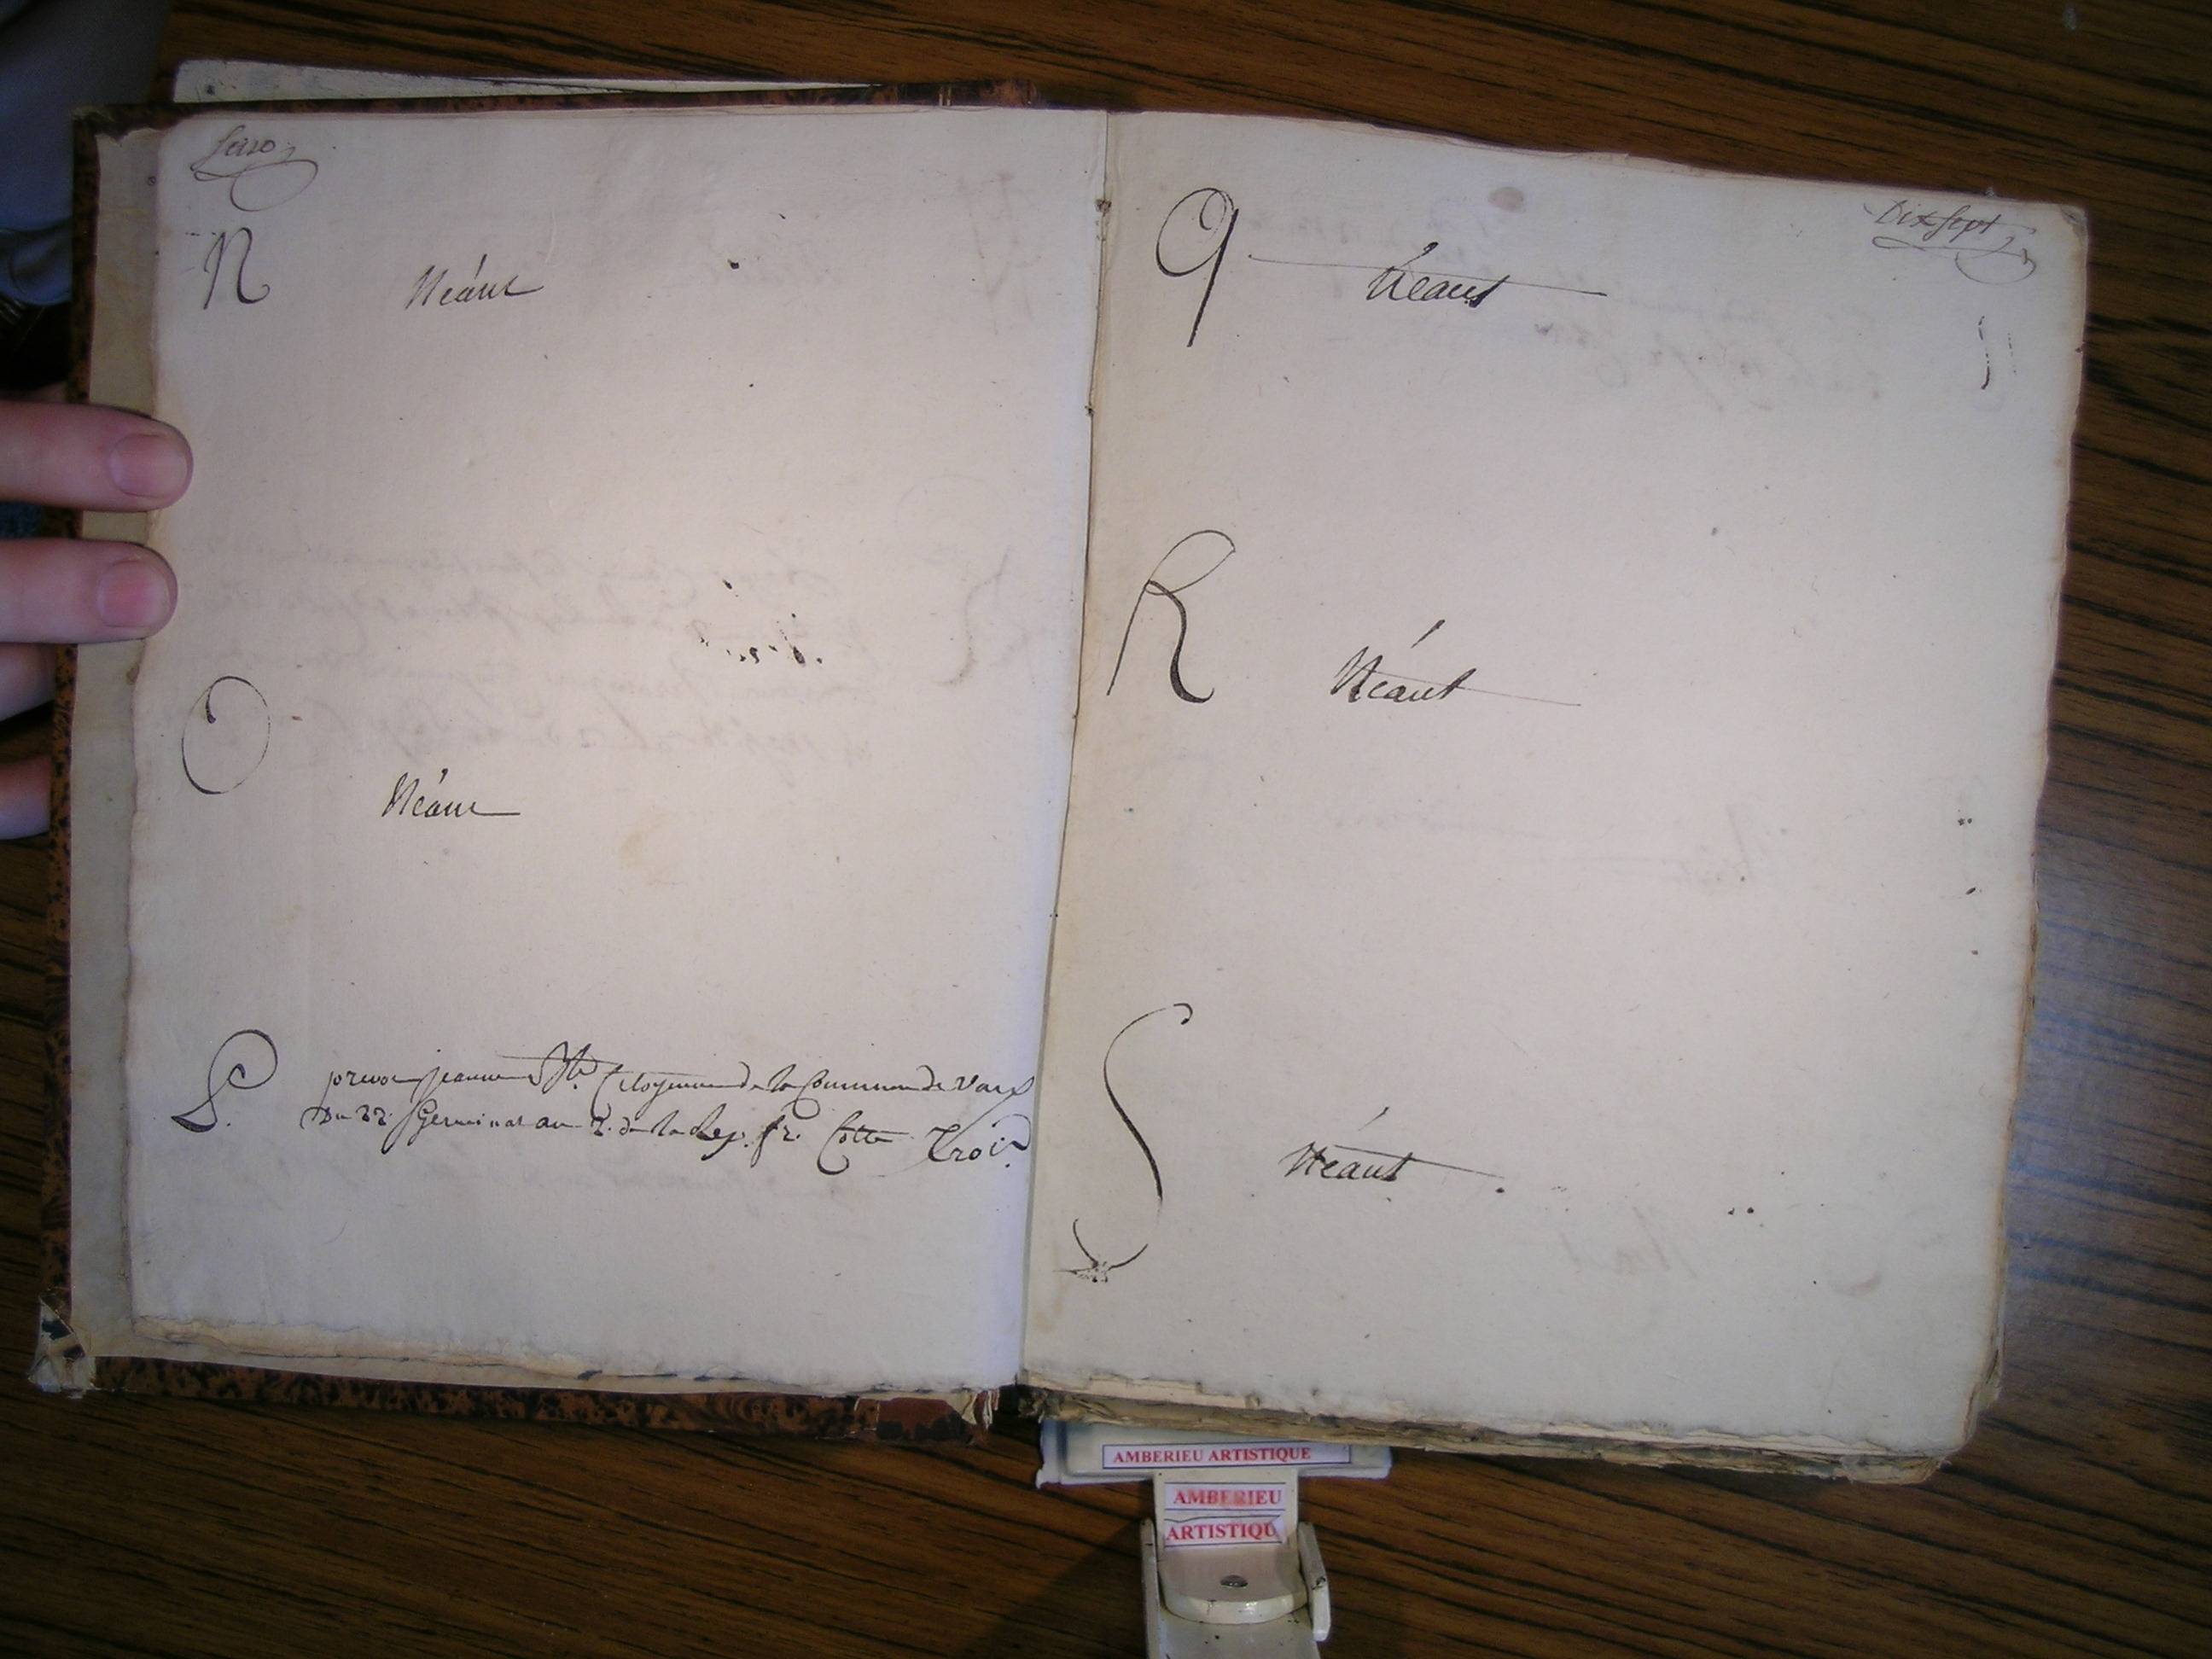 Seize
N
Néant
O
Néant
P.
prevot jeanne Citoyenne de la Commune de Vaux
Du 22. Germinal an 2. de la Rep. fr. Cotte Trois
Dix sept
Q
Néant
R
Néant
S
Néant
AMBERIEU ARTISTIQUE
AMBERIEU
ARTISTIQU